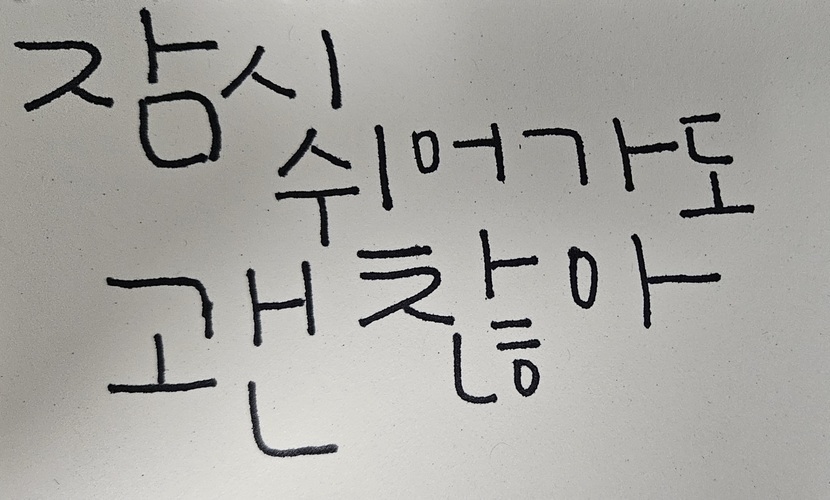 잠시
쉬어가도
괜찮아